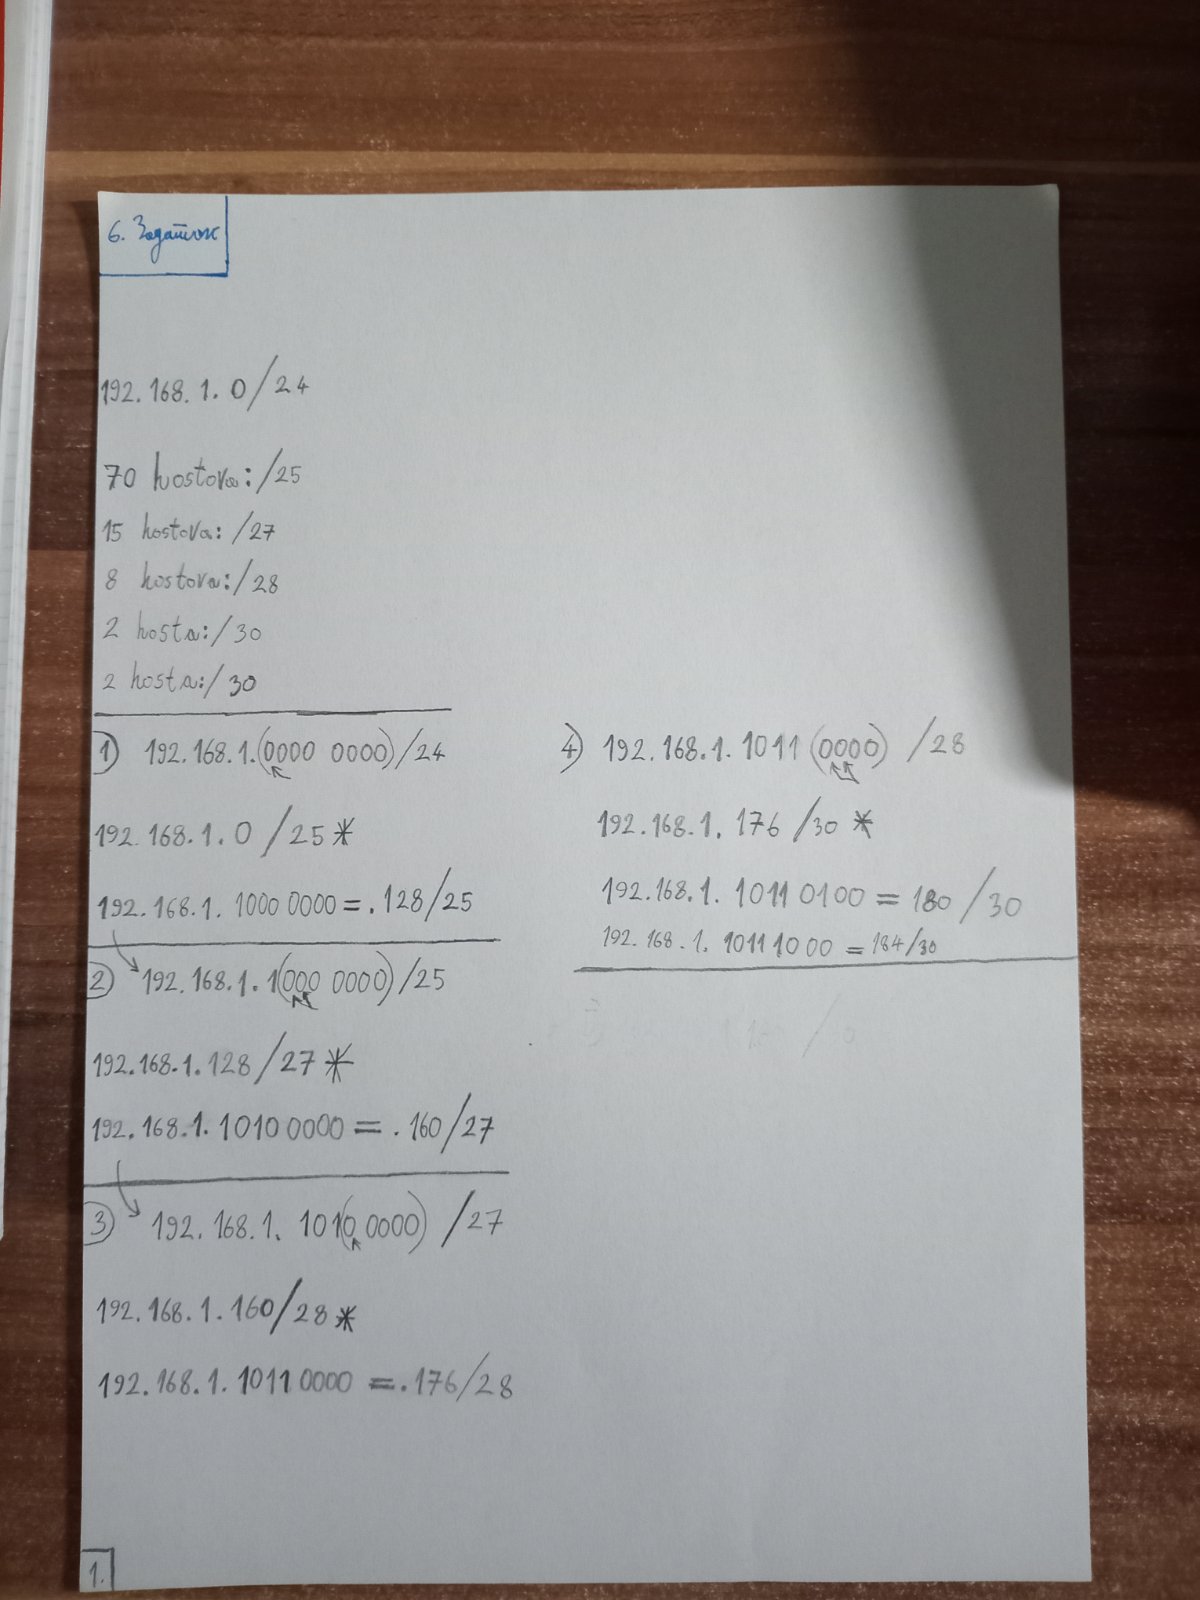 6. Задатак
192.168.1.0/24
70 hostova:/25
15 hostova:/27
8 hostova:/28
2 hosta:/30
2 hosta:/30
1) 192.168.1.(0000 0000)/24
192.168.1.0/25*
192.168.1. 1000 0000=.128/25
2) 192.168.1.1(000 0000)/25
192.168.1.128/27*
192.168.1.1010 0000=.160/27
3) 192.168.1. 101(0 0000)/27
192.168.1.160/28*
192.168.1.1011 0000=.176/28
4) 192.168.1.1011(0000)/28
192.168.1.176/30*
192.168.1.1011 0100=180/30
192.168.1.1011 1000=184/30
1.